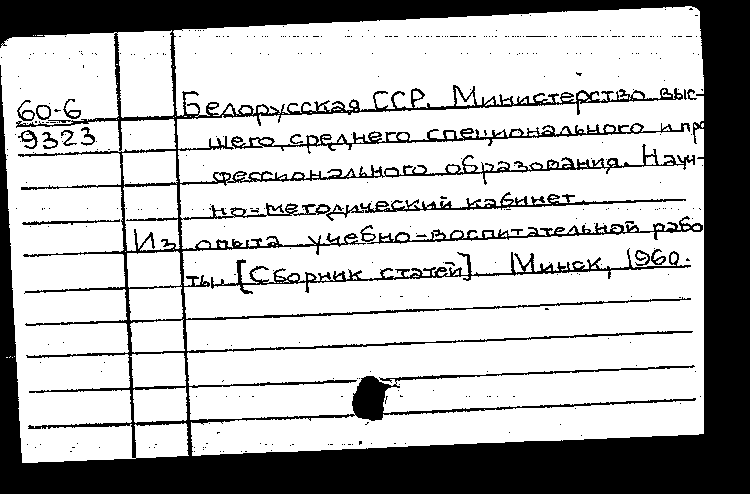 60-6
9323
Белорусская ССР. Министерство выс-
шего, среднего специонального и про
фессионального образования. Науч-
но-методический кабинет.
Из опыта учебно-воспитательной рабо
ты. [Сборник статей]. Минск, 1960.